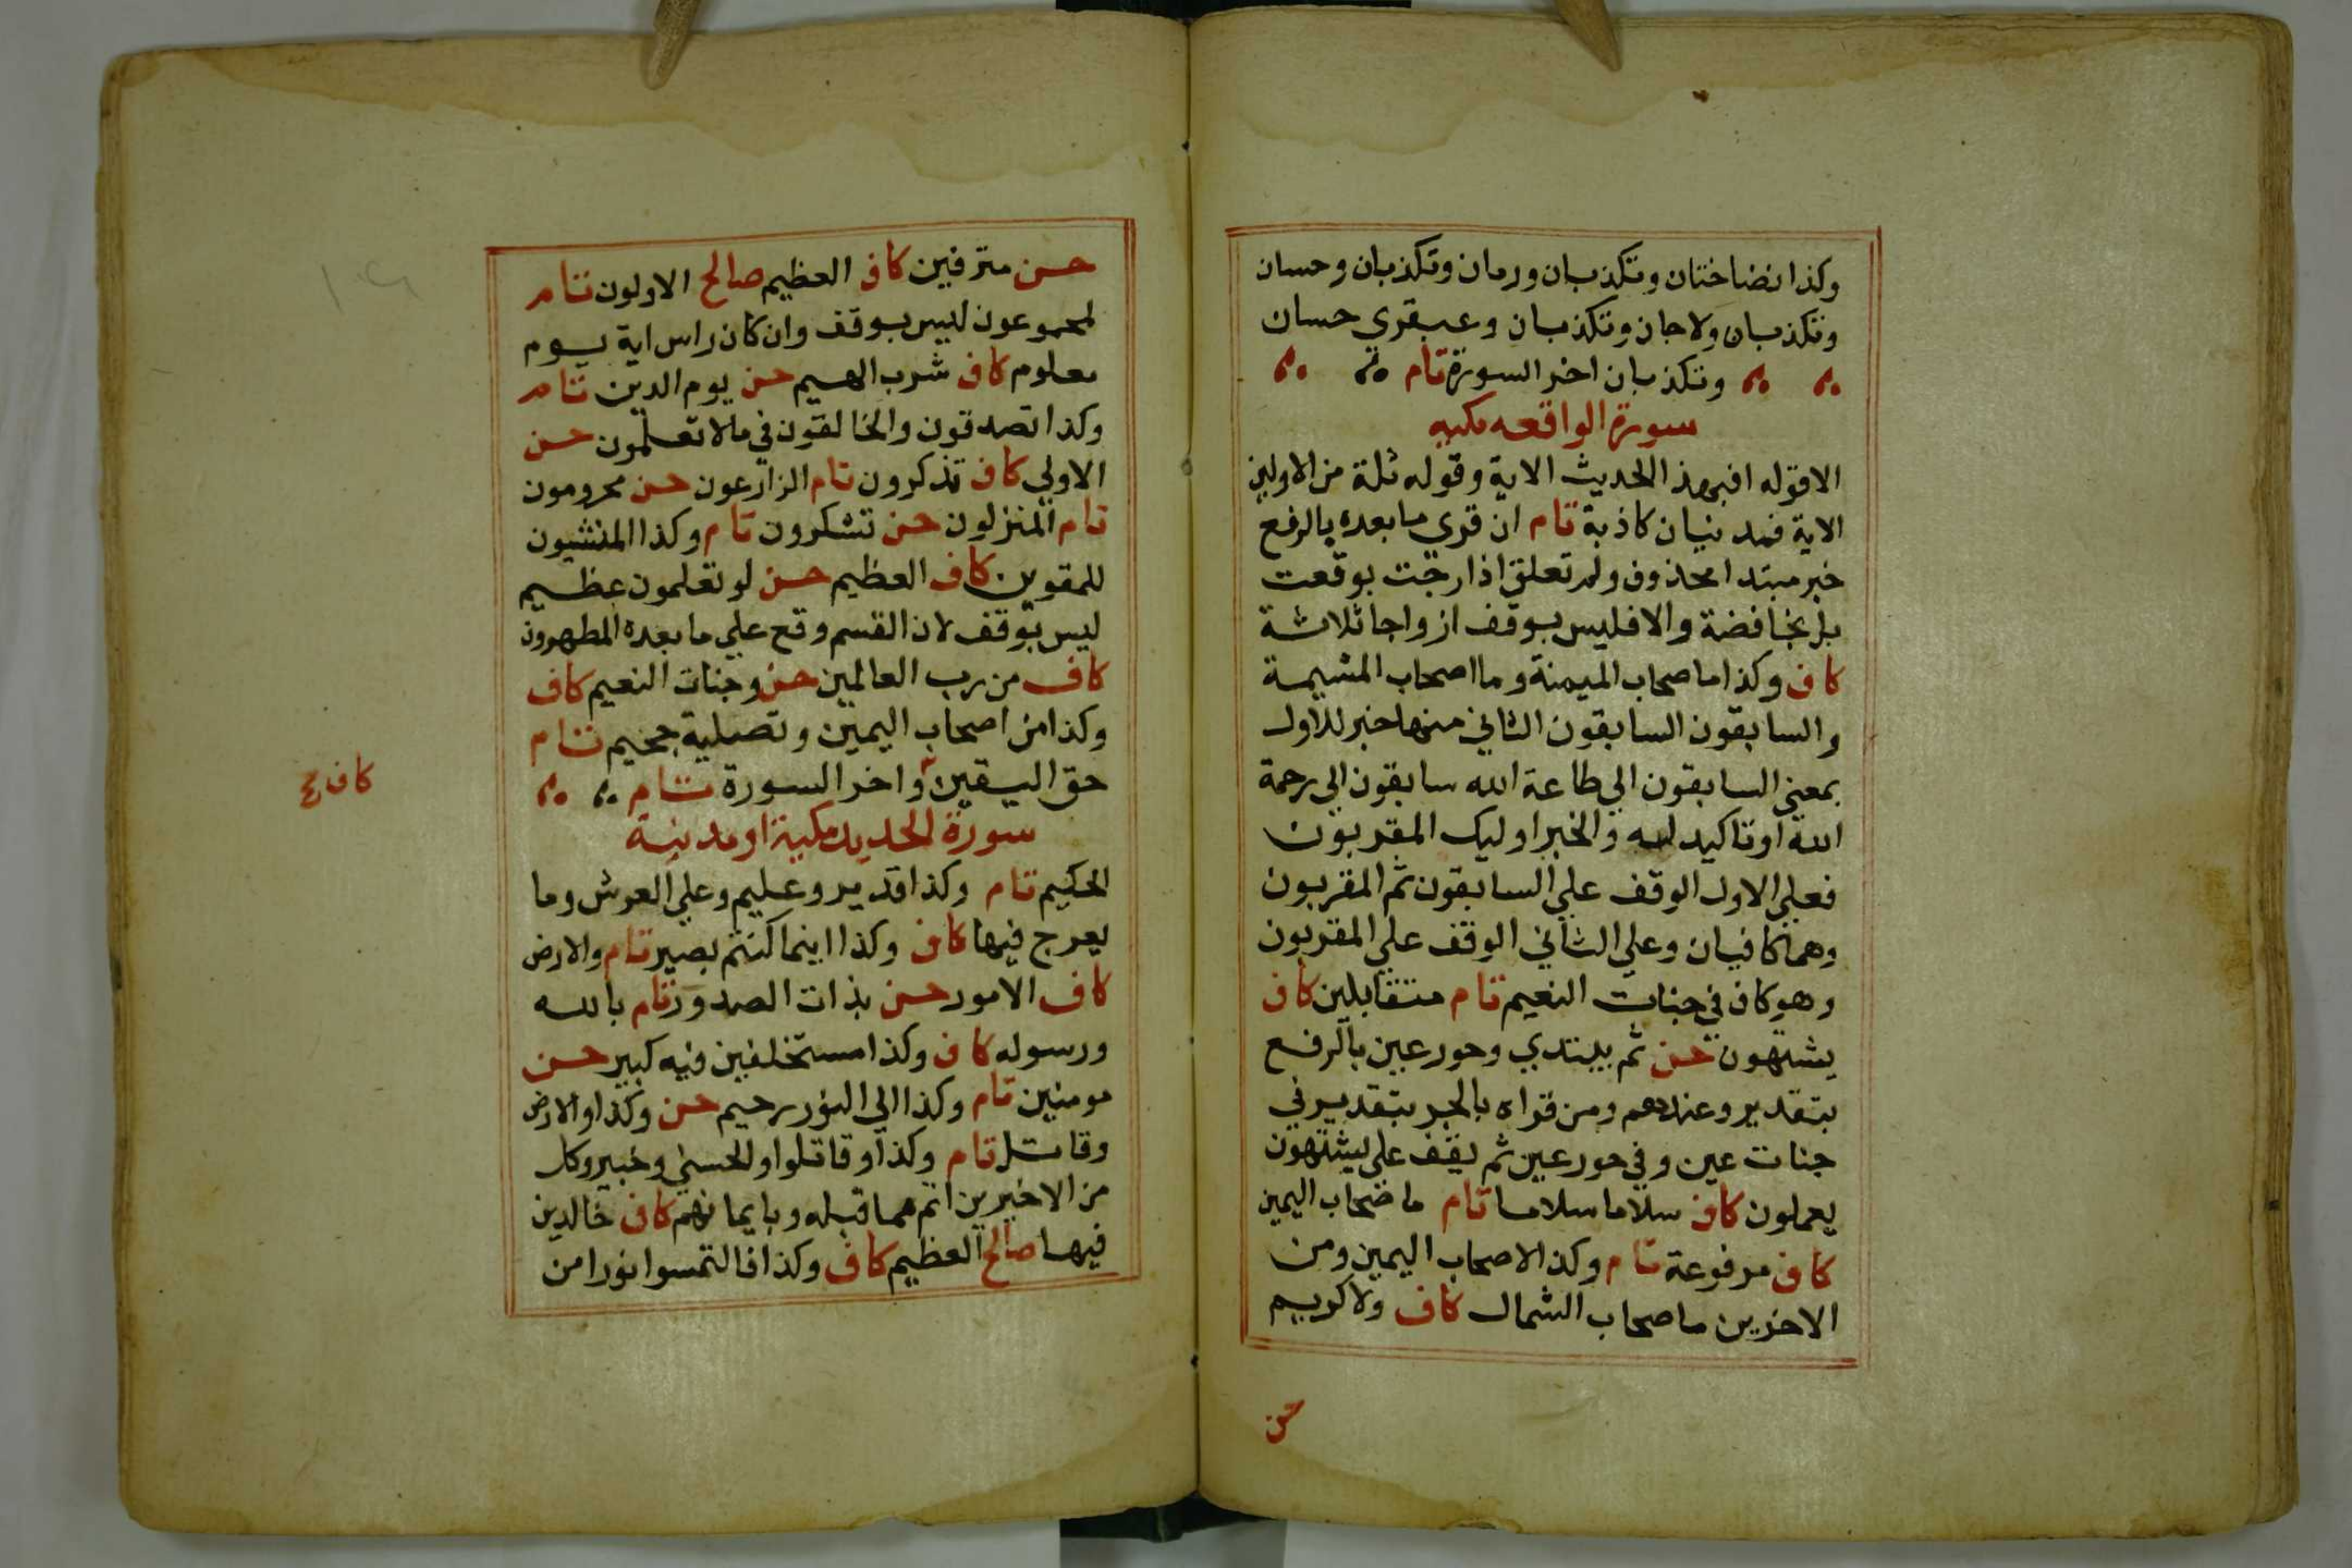 وكذا نضاختان وتكذبان ورمان وتكذبان وحسان
وتكذبان ولا جان وتكذبان وعبقري حسان
وتكذبان اخر السورة تام
سورة الواقعه مكيه
الا قوله افبهذا الحديث الاية وقوله ثلة من الاولين
الاية فمدنيان كاذبة تام ان قري ما بعده بالرفع
خبر مبتدا محذوف ولم تعلق اذا رجت بوقعت
بل بخافضة والا فليس بوقف ازواجا ثلاثة
كاف وكذا ما اصحاب الميمنة وما اصحاب المشيمة
والسابقون السابقون الثاني منهما خبر للاول
بمعني السابقون الي طاعة الله سابقون الي رحمة
الله او تاكيد له والخبر اوليك المقربون
فعلي الاول الوقف علي السابقون ثم المقربون
وهما كافيان وعلي الثاني الوقف علي المقربون
وهو كاف في جنات النعيم تام متقابلين كاف
يشتهون حسن ثم يبتدي وحور عين بالرفع
بتقدير وعندهم ومن قراه بالجر بتقدير في
جنات عين وفي حور عين ثم يقف علي يشتهون
يعملون كاف سلاما سلاما تام ما اصحاب اليمين
كاف مرفوعة تام وكذا لاصحاب اليمين ومن
الاخرين ما اصحاب الشمال كاف ولا كريم
حسن
حسن مترفين كاف العظيم صالح الاولون تام
لمجموعون ليس بوقف وان كان راس اية يوم
معلوم كاف شرب الهيم حسن يوم الدين تام
وكذا تصدقون والخالقون في ما لا تعلمون حسن
الاولي كاف تذكرون تام الزارعون حسن محرومون
تام المنزلون حسن تشكرون تام وكذا المنشيون
للمقوين كاف العظيم حسن لو تعلمون عظيم
ليس بوقف لان القسم وقع علي ما بعده المطهرون
كاف من رب العالمين حسن وجنات النعيم كاف
وكذا من اصحاب اليمين وتصلية جحيم تام
حق اليقين واخر السورة تام
كاف
سورة الحديد مكية او مدنية
الحكيم تام وكذا قدير وعليم وعلي العرش وما
يعرج فيها كاف وكذا اينما كنتم بصير تام والارض
كاف الامور حسن بذات الصدور تام بالله
ورسوله كاف وكذا مستخلفين فيه كبير حسن
مومنين تام وكذا الي النور رحيم حسن وكذا والارض
وقاتل تام وكذا وقاتلوا والحسني وخبير وكل
من الاخيرين اتم مما قبله وبايمانهم كاف خالدين
فيها صالح العظيم كاف وكذا فالتمسوا نورا من